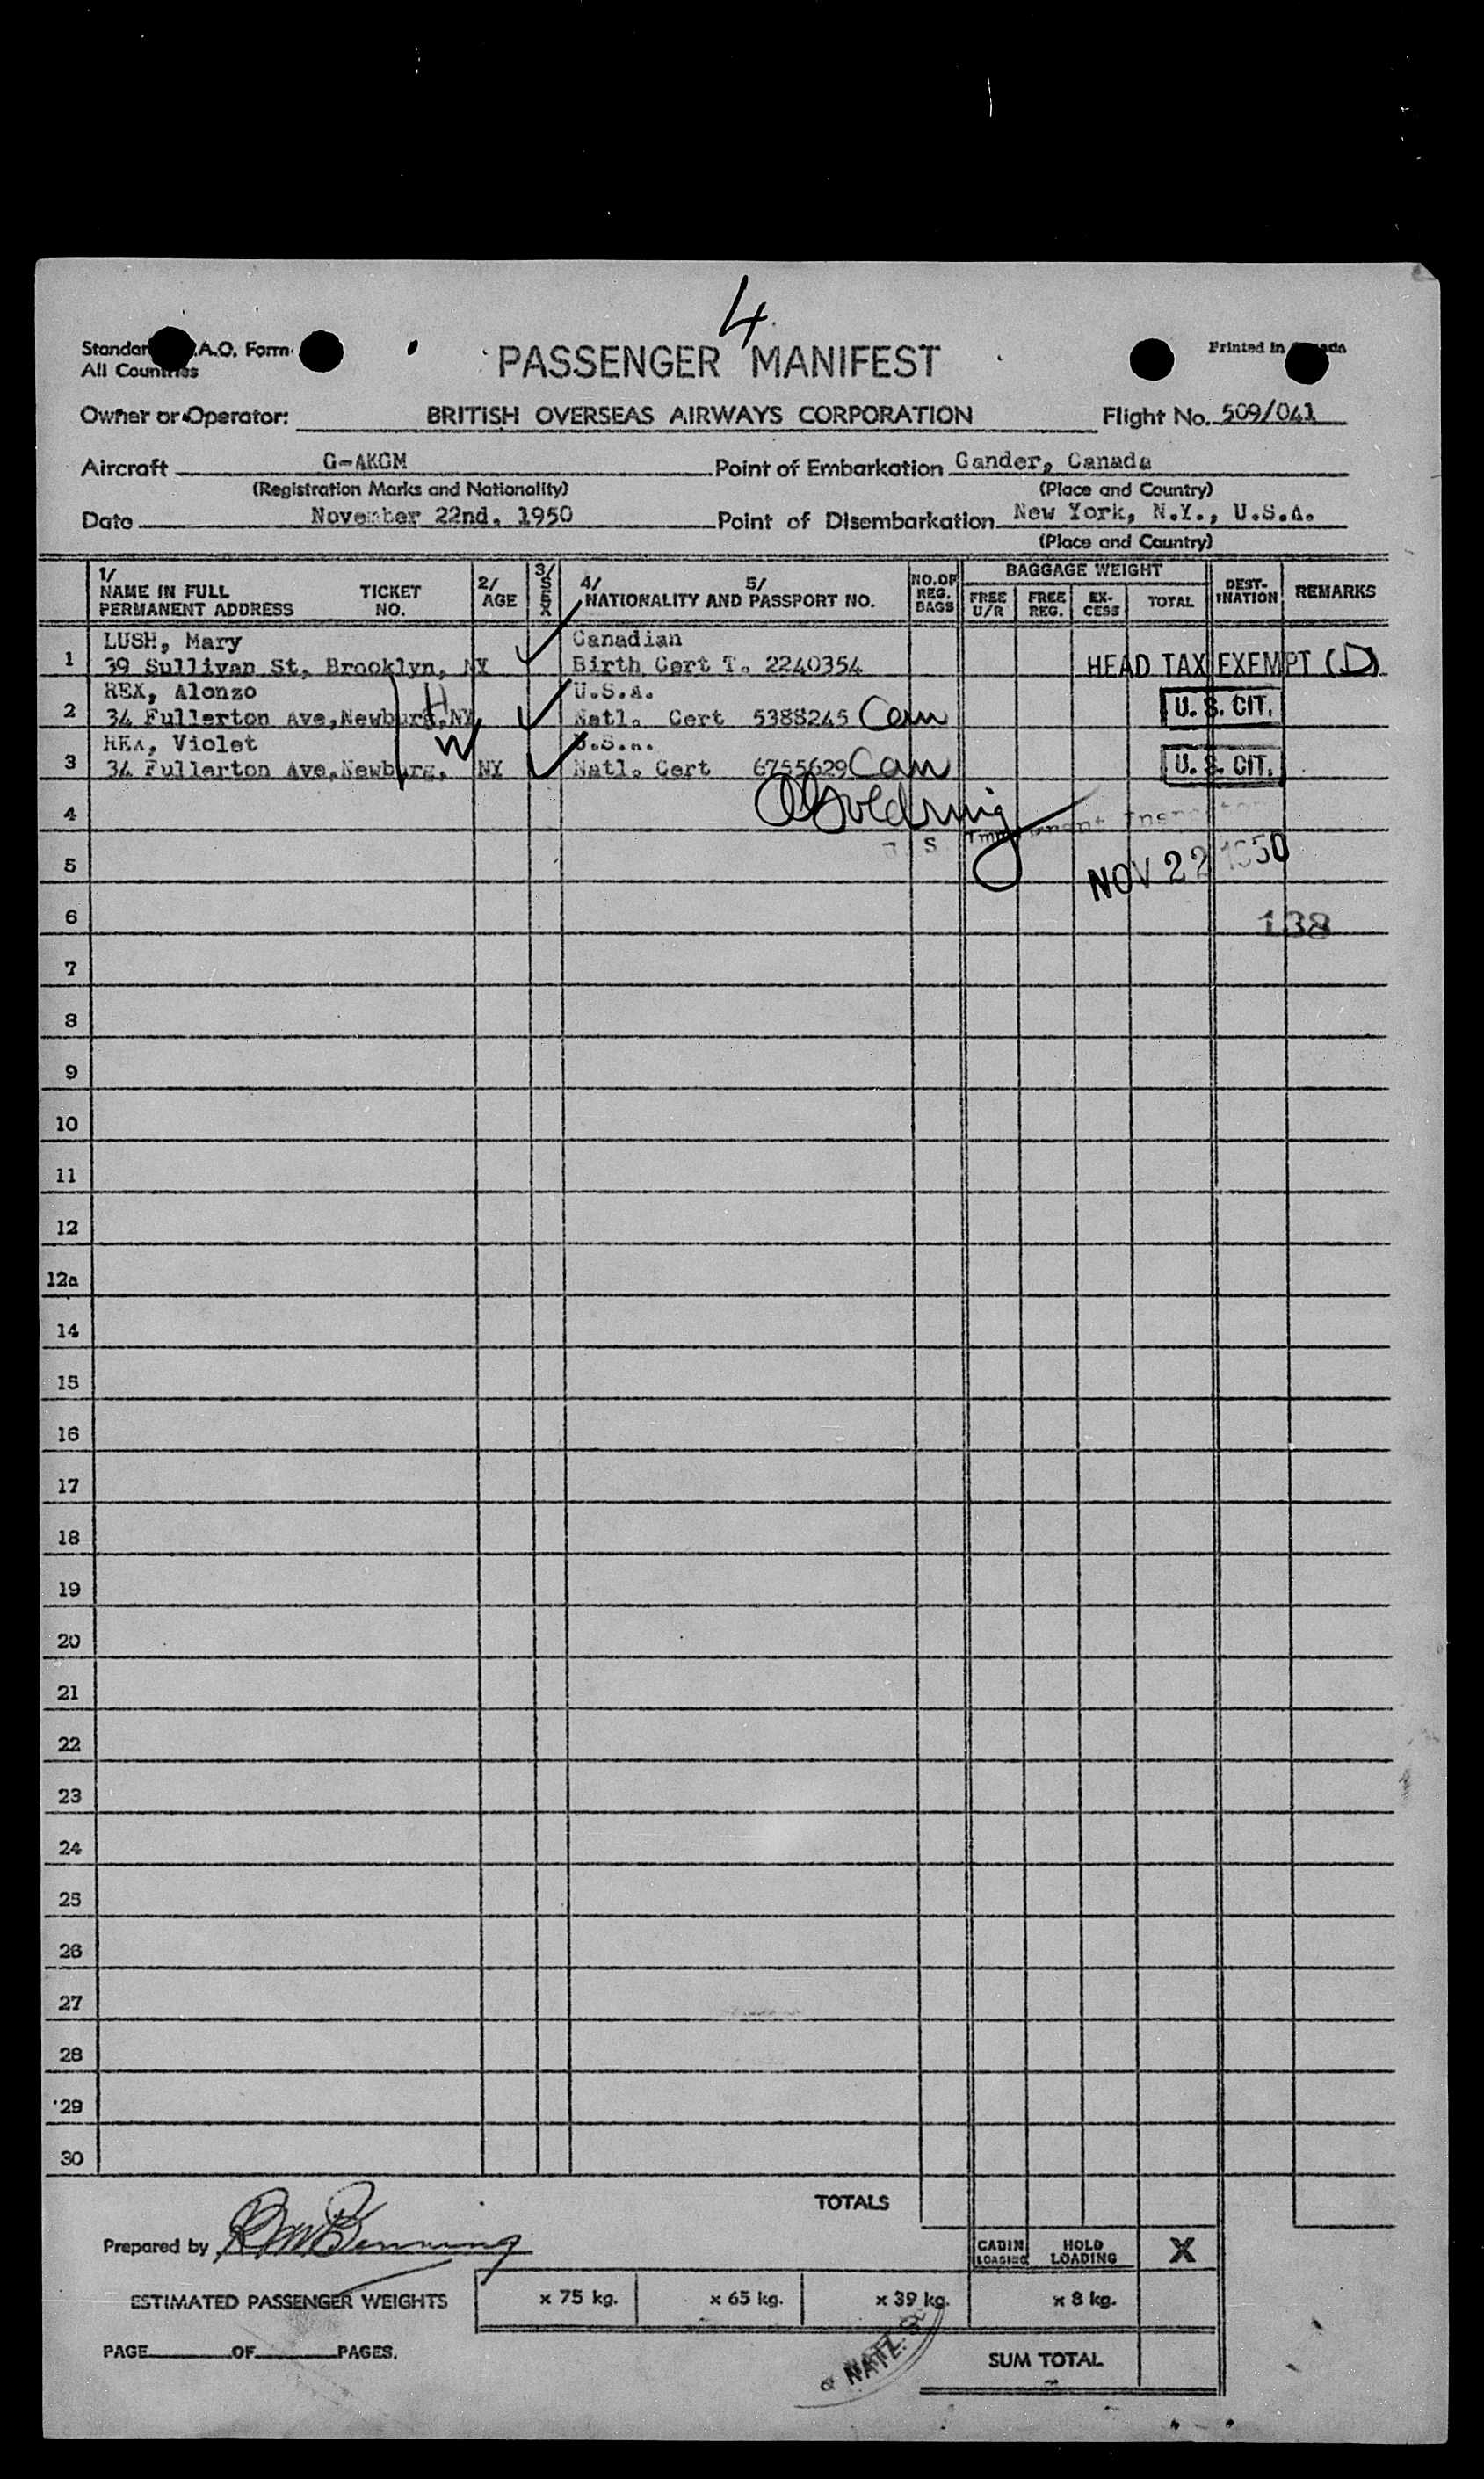 4
Standar .A.O. Form Printed in
All Countries
PASSENGER MANIFEST
Owner or Operator: BRITISH OVERSEAS AIRWAYS CORPORATION Flight No. 509/041
Aircraft G-AKGM Point of Embarkation Gander, Canada
(Registration Marks and Nationality) (Place and Country)
Date November 22nd. 1950 Point of Disembarkation New York, N.Y., U.S.A.
(Place and Country)
1/ NAME IN FULL PERMANENT ADDRESS TICKET NO. 2/ AGE 3/ SEX 4/ 5/ NATIONALITY AND PASSPORT NO. NO. OF REG. BAGS BAGGAGE WEIGHT FREE U/R FREE REG. EX-CESS TOTAL DEST-INATION REMARKS
LUSH, Mary Canadian
1 39 Sullivan St, Brooklyn, NY Birth Cert T. 2240354 HEAD TAX EXEMPT (D)
REX, Alonzo H U.S.A.
2 34 Fullerton Ave,Newburg,NY Natl. Cert 5388245 Can U. S. CIT.
REX, Violet W U.S.A.
3 34 Fullerton Ave,Newburg, NY Natl. Cert 6755629 Can U. S. CIT.
4
U. S. Immigrant Inspector
5 NOV 22 1950
6 138
7
8
9
10
11
12
12a
14
15
16
17
18
19
20
21
22
23
24
25
26
27
28
29
30
TOTALS
Prepared by CABIN LOADING HOLD LOADING X
ESTIMATED PASSENGER WEIGHTS x 75 kg. x 65 kg. x 39 kg. x 8 kg.
PAGE OF PAGES. & NATZ. SUM TOTAL